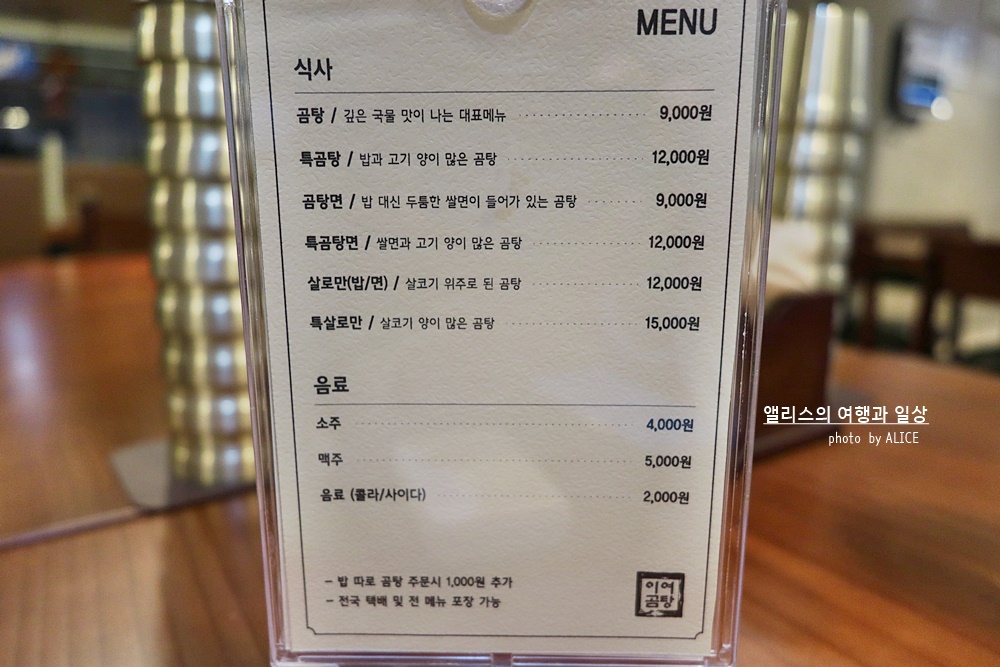 MENU
식사
곰탕 / 깊은 국물 맛이 나는 대표메뉴 9,000원
특곰탕 / 밥과 고기 양이 많은 곰탕 12,000원
곰탕면 / 밥 대신 두툼한 쌀면이 들어가 있는 곰탕 9,000원
특곰탕면 / 쌀면과 고기 양이 많은 곰탕 12,000원
살로만(밥/면) / 살코기 위주로 된 곰탕 12,000원
특살로만 / 살코기 양이 많은 곰탕 15,000원
음료
소주 4,000원
맥주 5,000원
음료 (콜라/사이다) 2,000원
- 밥 따로 곰탕 주문시 1,000원 추가
- 전국 택배 및 전 메뉴 포장 가능
이여
곰탕
앨리스의 여행과 일상
photo by ALICE